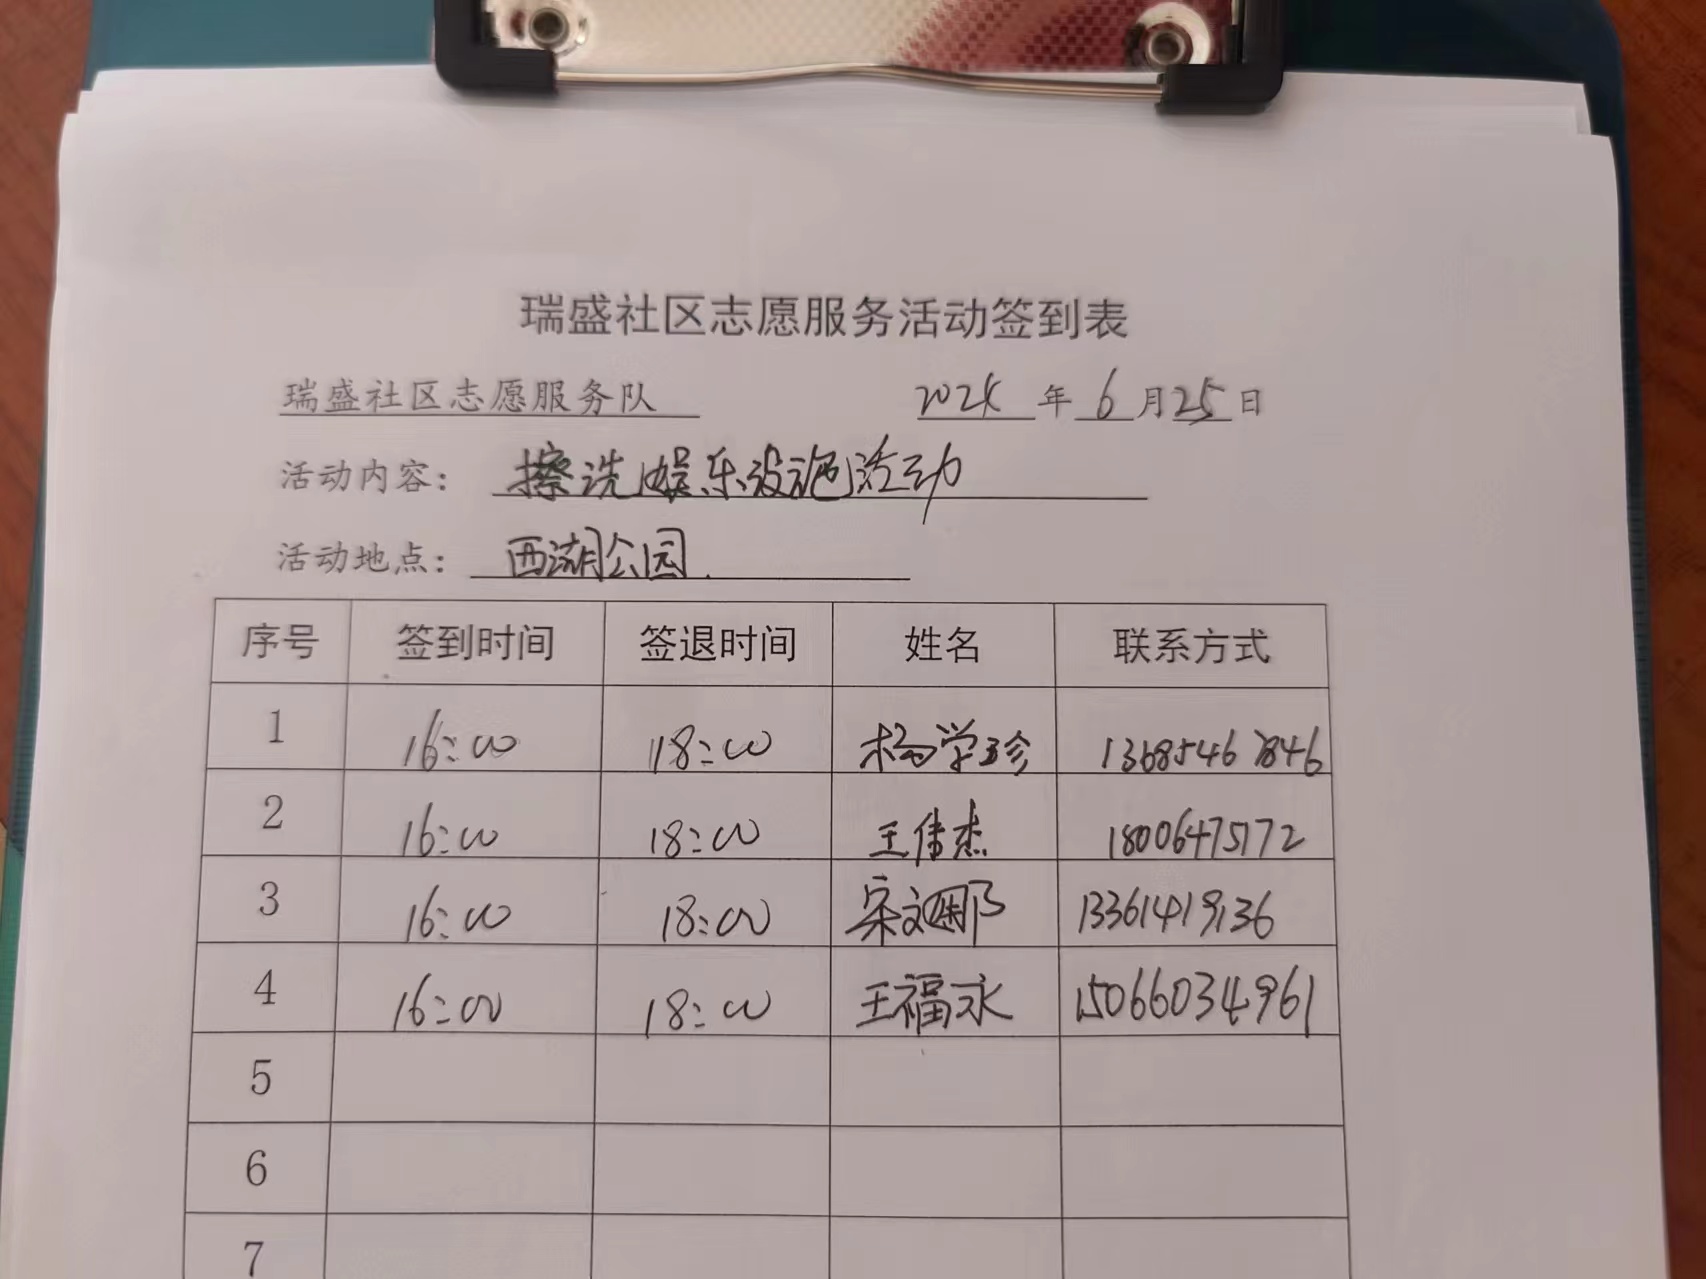 瑞盛社区志愿服务活动签到表
瑞盛社区志愿服务队 2024 年 6 月 25 日
活动内容: 擦洗娱乐设施活动
活动地点: 西湖公园
序号 签到时间 签退时间 姓名 联系方式
1 16:00 18:00 杨学珍 13685467846
2 16:00 18:00 王伟杰 18006475172
3 16:00 18:00 宋文娜 13361419136
4 16:00 18:00 王福永 15066034961
5
6
7